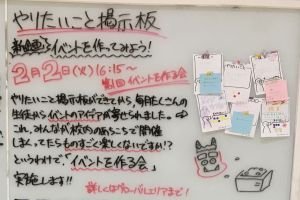 やりたいこと掲示板
新企画!イベントを作ってみよう!
2月2日(火)16:15〜
第1回イベントを作る会
やりたいこと掲示板ができてから、毎月たくさんの
生徒からイベントのアイデアが寄せられました。
これ、みんなが校内のあちこちで開催
しまくってたらものすごく楽しくないですか!?
というわけで、「イベントを作る会」
実施します!!
詳しくはグローバルエリアまで!